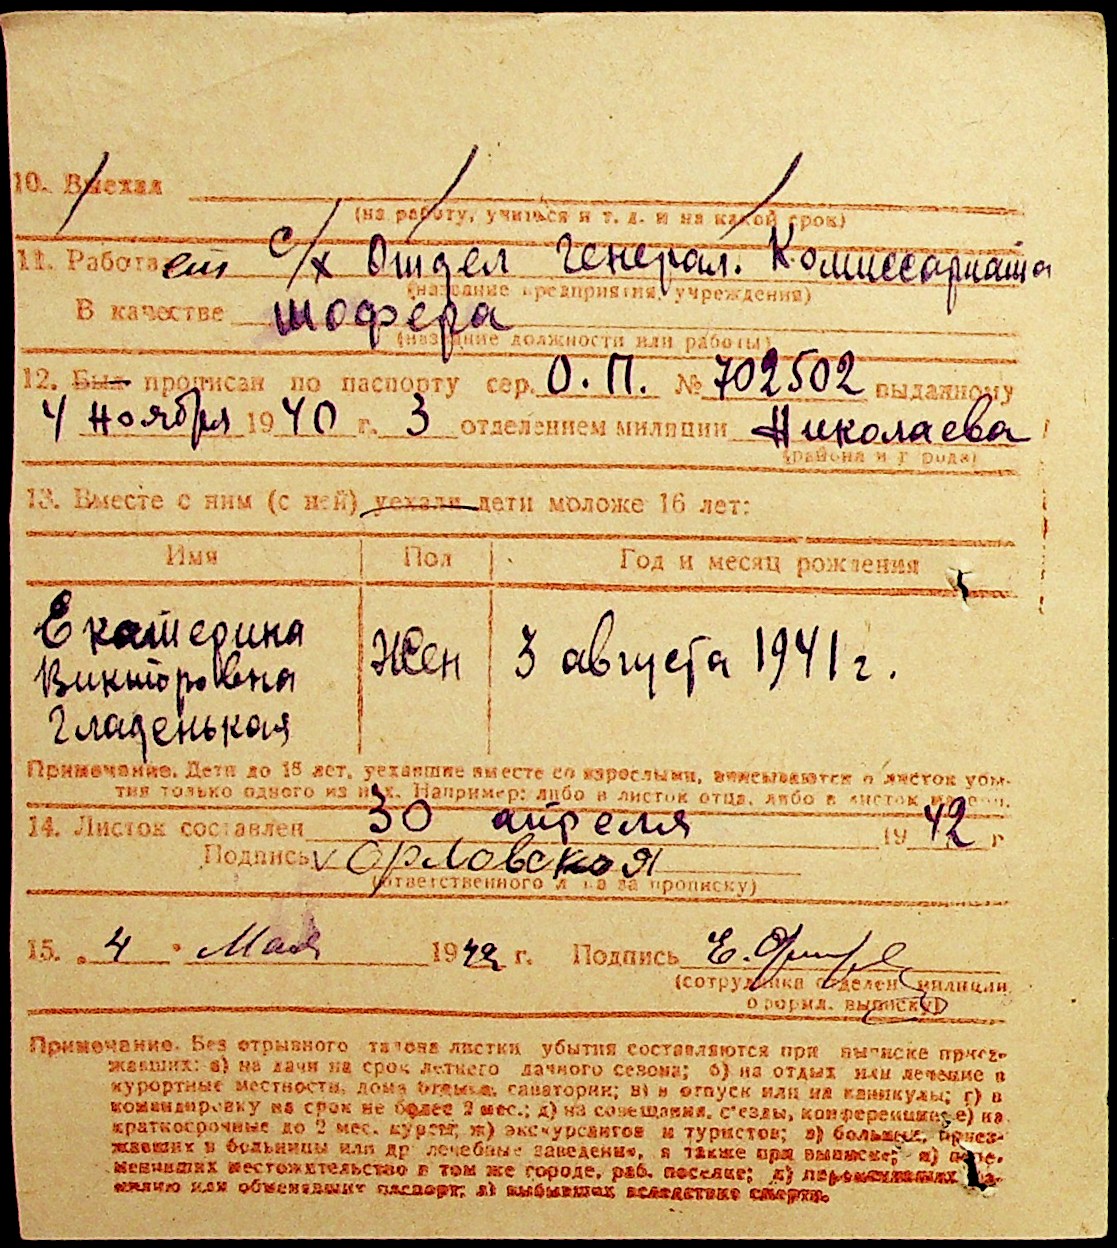 10. Выехал
(на работу, учиться и т. д. и на какой срок)
11. Работает с/х Отдел Генерал. Комиссариата
(название предприятия, учреждения)
В качестве шофера
(название должности или работы)
12. Был прописан по паспорту сер. О.П. № 702502 выданному
4 ноября 1940 г. 3 отделением милиции Николаева
(района и города)
13. Вместе с ним (с ней) уехали дети моложе 16 лет:
Имя Пол Год и месяц рождения
Екатерина
Викторовна Жен 3 августа 1941 г.
Гладенькая
Примечание. Дети до 16 лет, уехавшие вместе со взрослыми, вписываются в листок убы-
тия только одного из них. Например: либо в листок отца, либо в листок матери.
14. Листок составлен 30 апреля 1942 г
Подпись Орловская
(ответственного лица за прописку)
15. „4" Мая 1942 г. Подпись Е.
(сотрудника отделен. милиции
оформ. выписку)
Примечание. Без отрывного талона листки убытия составляются при выписке приез-
жавших: а) на дачи на срок летнего дачного сезона; б) на отдых или лечение в
курортные местности, дома отдыха, санатории; в) в отпуск или на каникулы; г) в
командировку на срок не более 2 мес.; д) на совещания, с'езды, конференции; е) на
краткосрочные до 2 мес. курсы; ж) экскурсантов и туристов; з) больных, приез-
жавших в больницы или др лечебные заведения, а также при выписке; и) пере-
менивших местожительство в том же городе, раб. поселке; к) переменивших фа-
милию или обменявших паспорт; л) выбывших вследствие смерти.